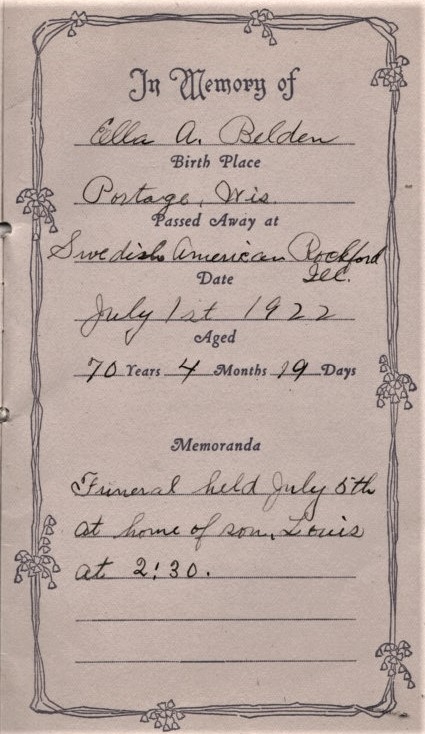 In Memory of
Ella A. Belden
Birth Place
Portage, Wis.
Passed Away at
Swedish American Rockford
Ill.
Date
July 1st 1922
Aged
70 Years 4 Months 19 Days
Memoranda
Funeral held July 5th
at home of son, Louis
at 2:30.